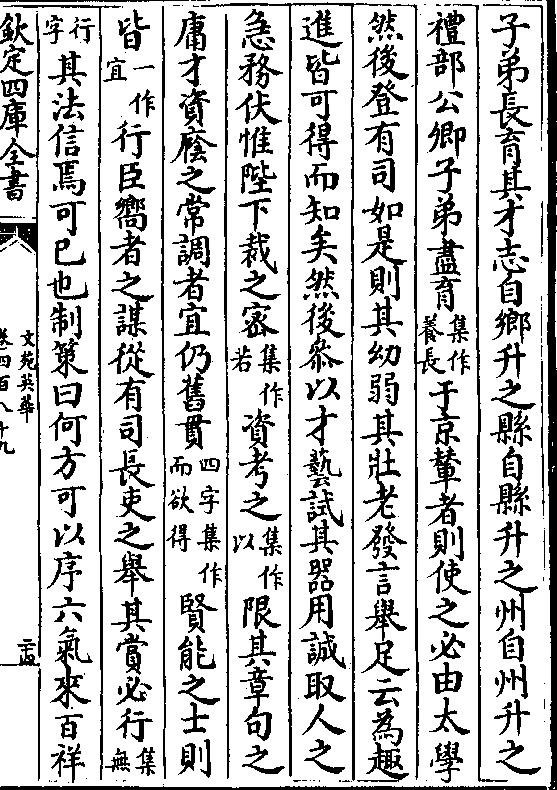 子弟長育其才志自鄉升之縣自縣升之州自州升之
禮部公卿子弟盡育集作養長于京輦者則使之必由太學
然後登有司如是則其幼弱其壯老發言舉足云為趣
進皆可得而知矣然後叅以才藝試其器用誠取人之
急務伏惟陛下裁之宻集作若資考之集作以限其章句之
庸才資廕之常調者宜仍舊貫四字集作而欲得賢能之士則
皆一作宜行臣嚮者之謀從有司長吏之舉其賞必行集無
行字其法信焉可已也制策曰何方可以序六氣來百祥
欽定四庫全書
文苑英華
卷四百八十九
二十四